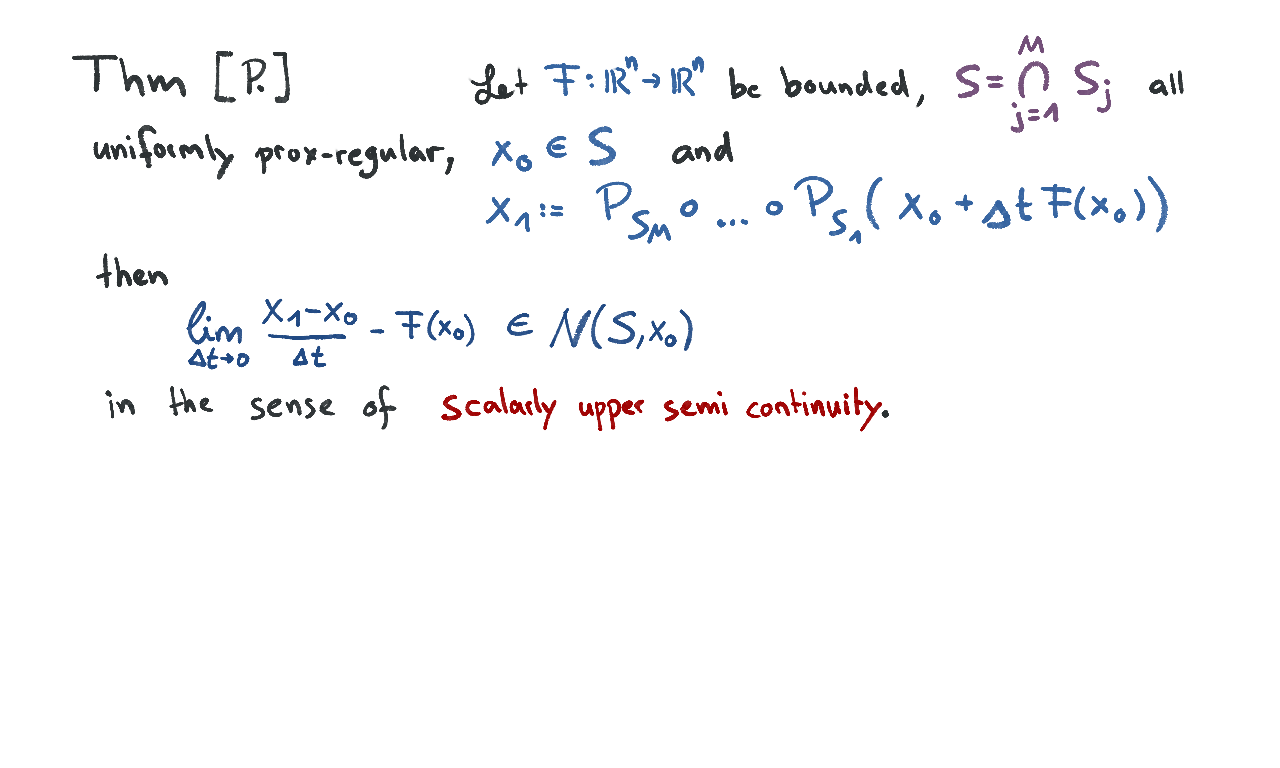 Thm [P.] Let F : ℝⁿ → ℝⁿ be bounded, S = ⋂_{j=1}^{M} S_j all
uniformly prox-regular, x₀ ∈ S and
x₁ := P_{S_M} ∘ ... ∘ P_{S_1} ( x₀ + Δt F(x₀) )
then
lim_{Δt→0} (x₁ - x₀)/Δt - F(x₀) ∈ N(S, x₀)
in the sense of scalarly upper semi continuity.